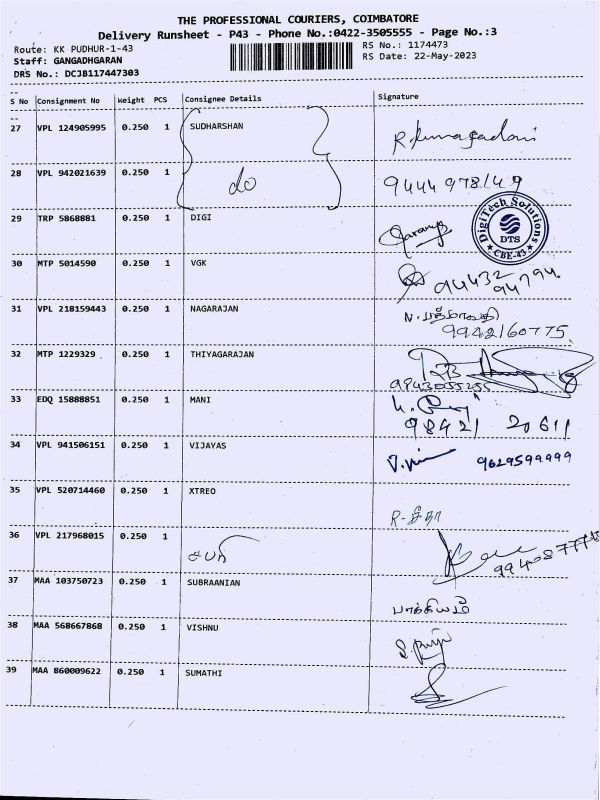 THE PROFESSIONAL COURIERS, COIMBATORE
Delivery Runsheet - P43 - Phone No.:0422-3505555 - Page No.:3
Route: KK PUDHUR-1-43 RS No.: 1174473
Staff: GANGADHGARAN RS Date: 22-May-2023
DRS No.: DCJB117447303
S No Consignment No Weight PCS Consignee Details Signature
27 VPL 124905995 0.250 1 SUDHARSHAN
28 VPL 942021639 0.250 1 do 9444 978149
29 TRP 5868881 0.250 1 DIGI
DigiTech Solutions
DTS
CBE-43
30 MTP 5014590 0.250 1 VGK 94432 94794
31 VPL 218159443 0.250 1 NAGARAJAN N. பத்மாவதி
9942160775.
32 MTP 1229329 0.250 1 THIYAGARAJAN
9843055255
33 EDQ 15888851 0.250 1 MANI
98421 20611
34 VPL 941506151 0.250 1 VIJAYAS 9629599999
35 VPL 520714460 0.250 1 XTREO R-கீதா
36 VPL 217968015 0.250 1 சபரி
37 MAA 103750723 0.250 1 SUBRAANIAN பாக்கியம்
38 MAA 568667868 0.250 1 VISHNU
39 MAA 860009622 0.250 1 SUMATHI